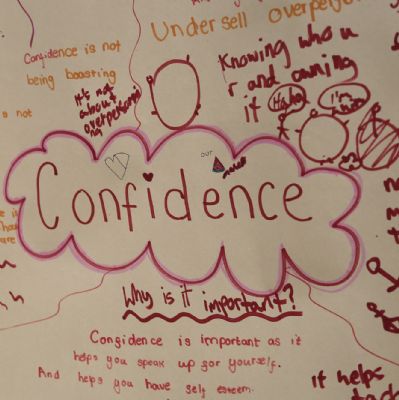 Undersell
Confidence is not
being boasting
It's not
about
overperforming
Knowing who u
r and owning
it
Haha
I'm
s not
our
Confidence
Why is it important?
Congidence is important as it
helps you speak up gor yourself.
And helps you have self esteem.
it helps